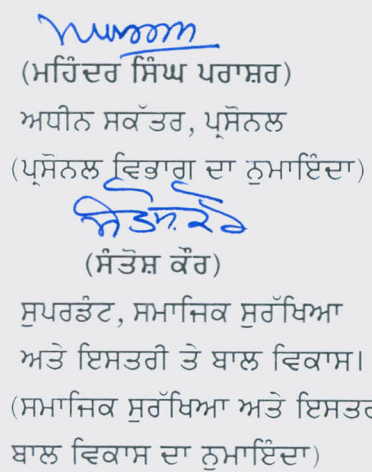 (ਮਹਿੰਦਰ ਸਿੰਘ ਪਰਾਸ਼ਰ)
ਅਧੀਨ ਸਕੱਤਰ, ਪ੍ਰਸੋਨਲ
(ਪ੍ਰਸੋਨਲ ਵਿਭਾਗ ਦਾ ਨੁਮਾਇੰਦਾ)
ਸੰਤੋਸ਼ ਕੌਰ
(ਸੰਤੋਸ਼ ਕੌਰ)
ਸੁਪਰਡੰਟ, ਸਮਾਜਿਕ ਸੁਰੱਖਿਆ
ਅਤੇ ਇਸਤਰੀ ਤੇ ਬਾਲ ਵਿਕਾਸ।
(ਸਮਾਜਿਕ ਸੁਰੱਖਿਆ ਅਤੇ ਇਸਤਰ
ਬਾਲ ਵਿਕਾਸ ਦਾ ਨੁਮਾਇੰਦਾ)